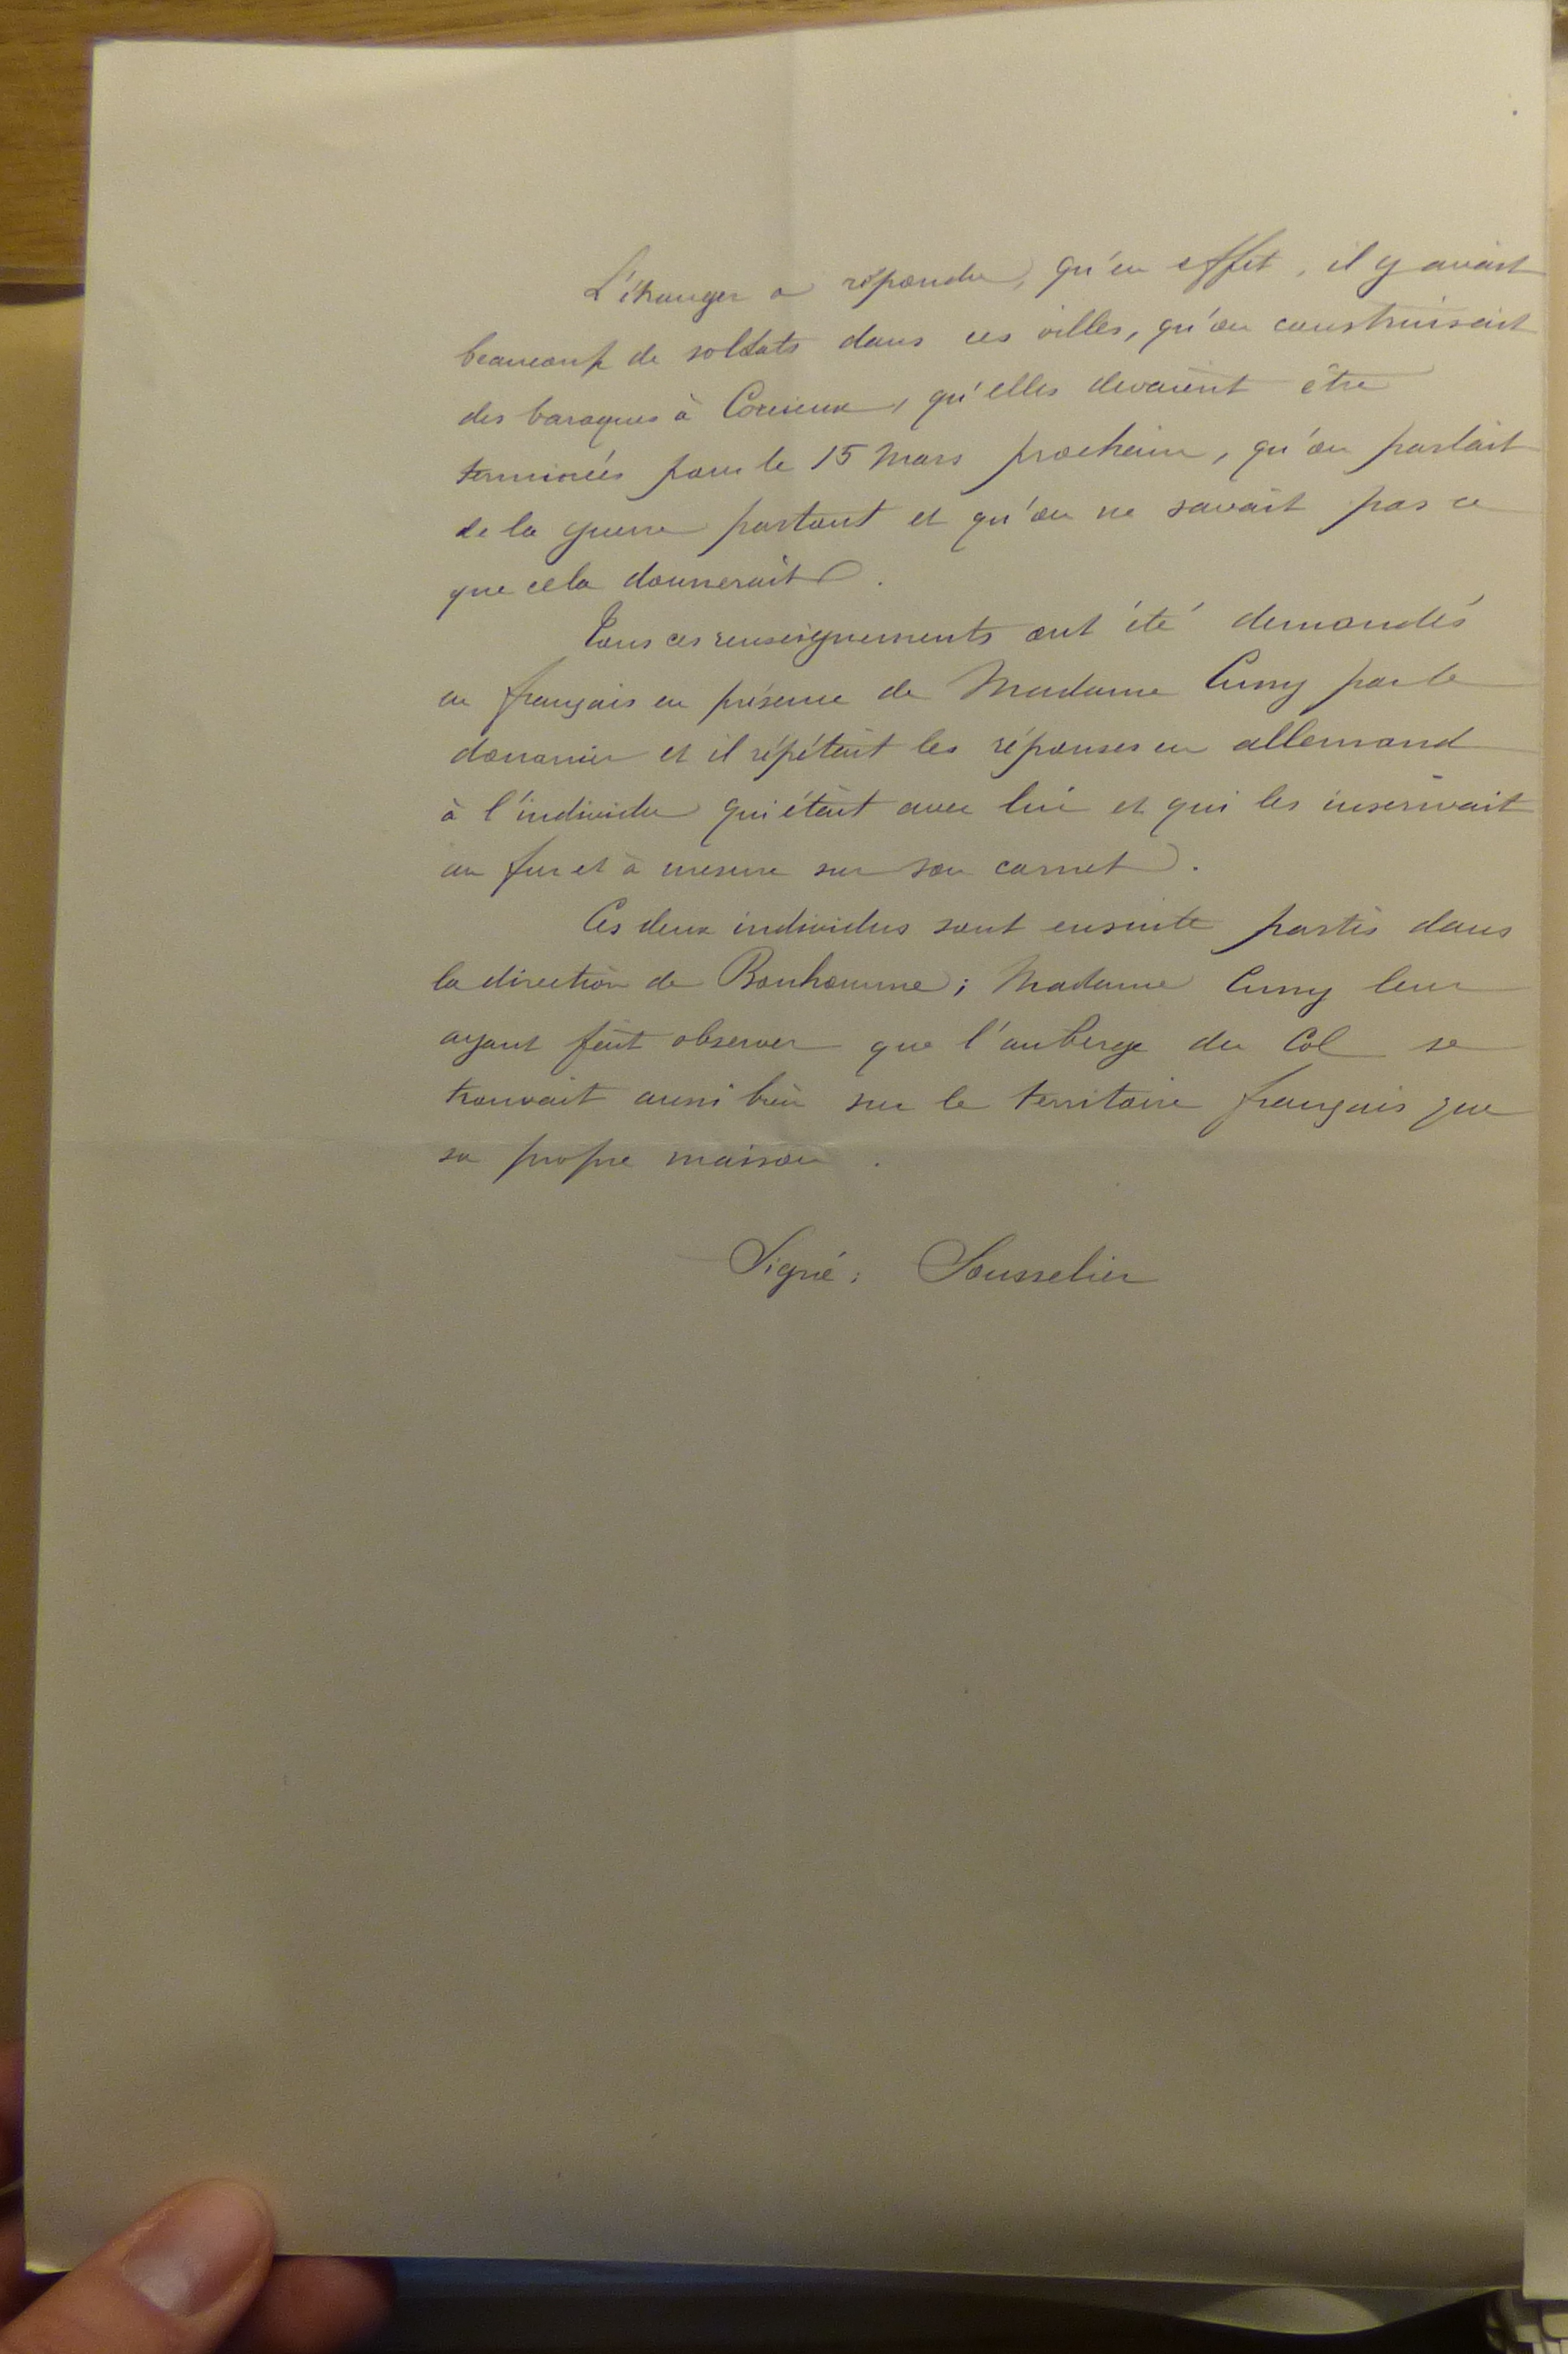 L'étranger a répondu, qu'en effet, il y avait
beaucoup de soldats dans ces villes, qu'on construisait
des baraques à Corcieux, qu'elles devaient être
terminées pour le 15 Mars prochain, qu'on parlait
de la guerre partout et qu'on ne savait pas ce
que cela donnerait.
Tous ces renseignements ont été demandés
en français en présence de Madame Cuny par le
douanier et il répétait les réponses en allemand
à l'individu qui était avec lui et qui les inscrivait
au fur et à mesure sur son carnet.
Ces deux individus sont ensuite partis dans
la direction de Bonhomme; Madame Cuny leur
ayant fait observer que l'auberge du Col se
trouvait aussi bien sur le territoire français que
sa propre maison.
Signé: Sousselier